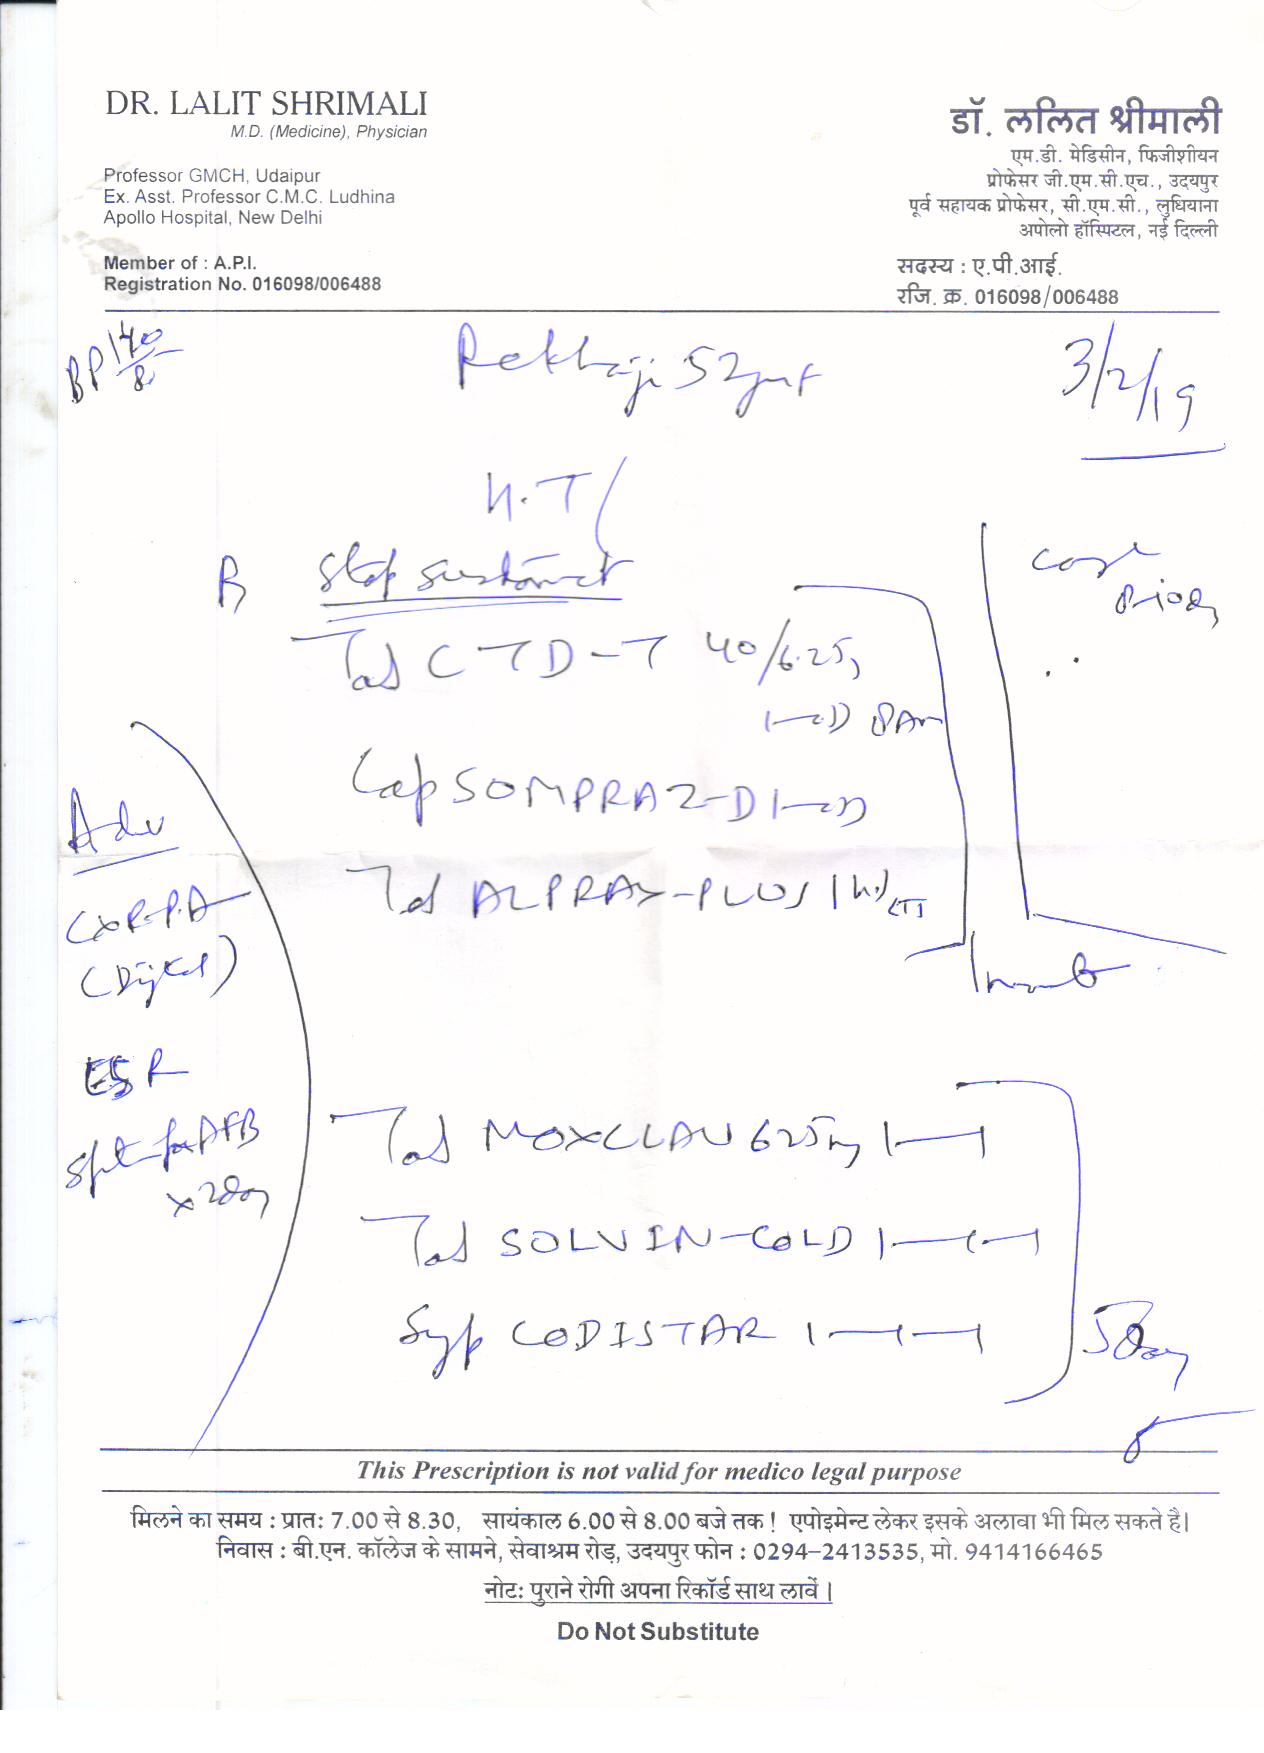 DR. LALIT SHRIMALI
M.D. (Medicine), Physician
Professor GMCH, Udaipur
Ex. Asst. Professor C.M.C. Ludhina
Apollo Hospital, New Delhi
Member of : A.P.I.
Registration No. 016098/006488
डॉ. ललित श्रीमाली
एम.डी. मेडिसीन, फिजीशीयन
प्रोफेसर जी.एम.सी.एच., उदयपुर
पूर्व सहायक प्रोफेसर, सी.एम.सी., लुधियाना
अपोलो हॉस्पिटल, नई दिल्ली
सदस्य : ए.पी.आई.
रजि. क्र. 016098/006488
BP 140/8
Rekhaji 52
3/2/19
H.T/
R Stop
Tab CTD-T 40/6.25
Cap SOMPRAZ-D 1
Tab ALPRAX-PLUS 1
Adv
CXR-P.A
(Digital)
ESR
for AFB
x 2 day
Tab MOXCLAV 625mg 1
Tab SOLVIN-COLD 1
Syp CODISTAR 1
5 day
This Prescription is not valid for medico legal purpose
मिलने का समय : प्रातः 7.00 से 8.30, सायंकाल 6.00 से 8.00 बजे तक ! एपोइमेन्ट लेकर इसके अलावा भी मिल सकते है।
निवास : बी.एन. कॉलेज के सामने, सेवाश्रम रोड़, उदयपुर फोन : 0294-2413535, मो. 9414166465
नोटः पुराने रोगी अपना रिकॉर्ड साथ लावें ।
Do Not Substitute